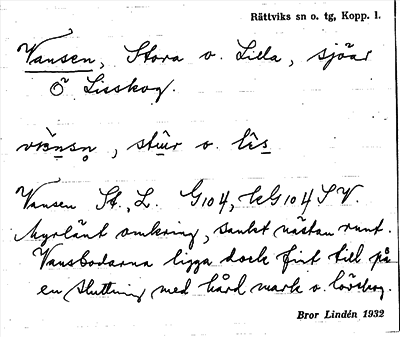 Rättviks sn o. tg, Kopp. l.
Vansen, Stora o. Lilla, sjöar
Ö Lisskog.
stûr o. lîs
Vansen St., L. G104, kG104 SV.
Myrlänt omkring, sankt nästan runt.
Vansbodarna ligga dock fint till på
en sluttning med hård mark o. lövskog.
Bror Lindén 1932